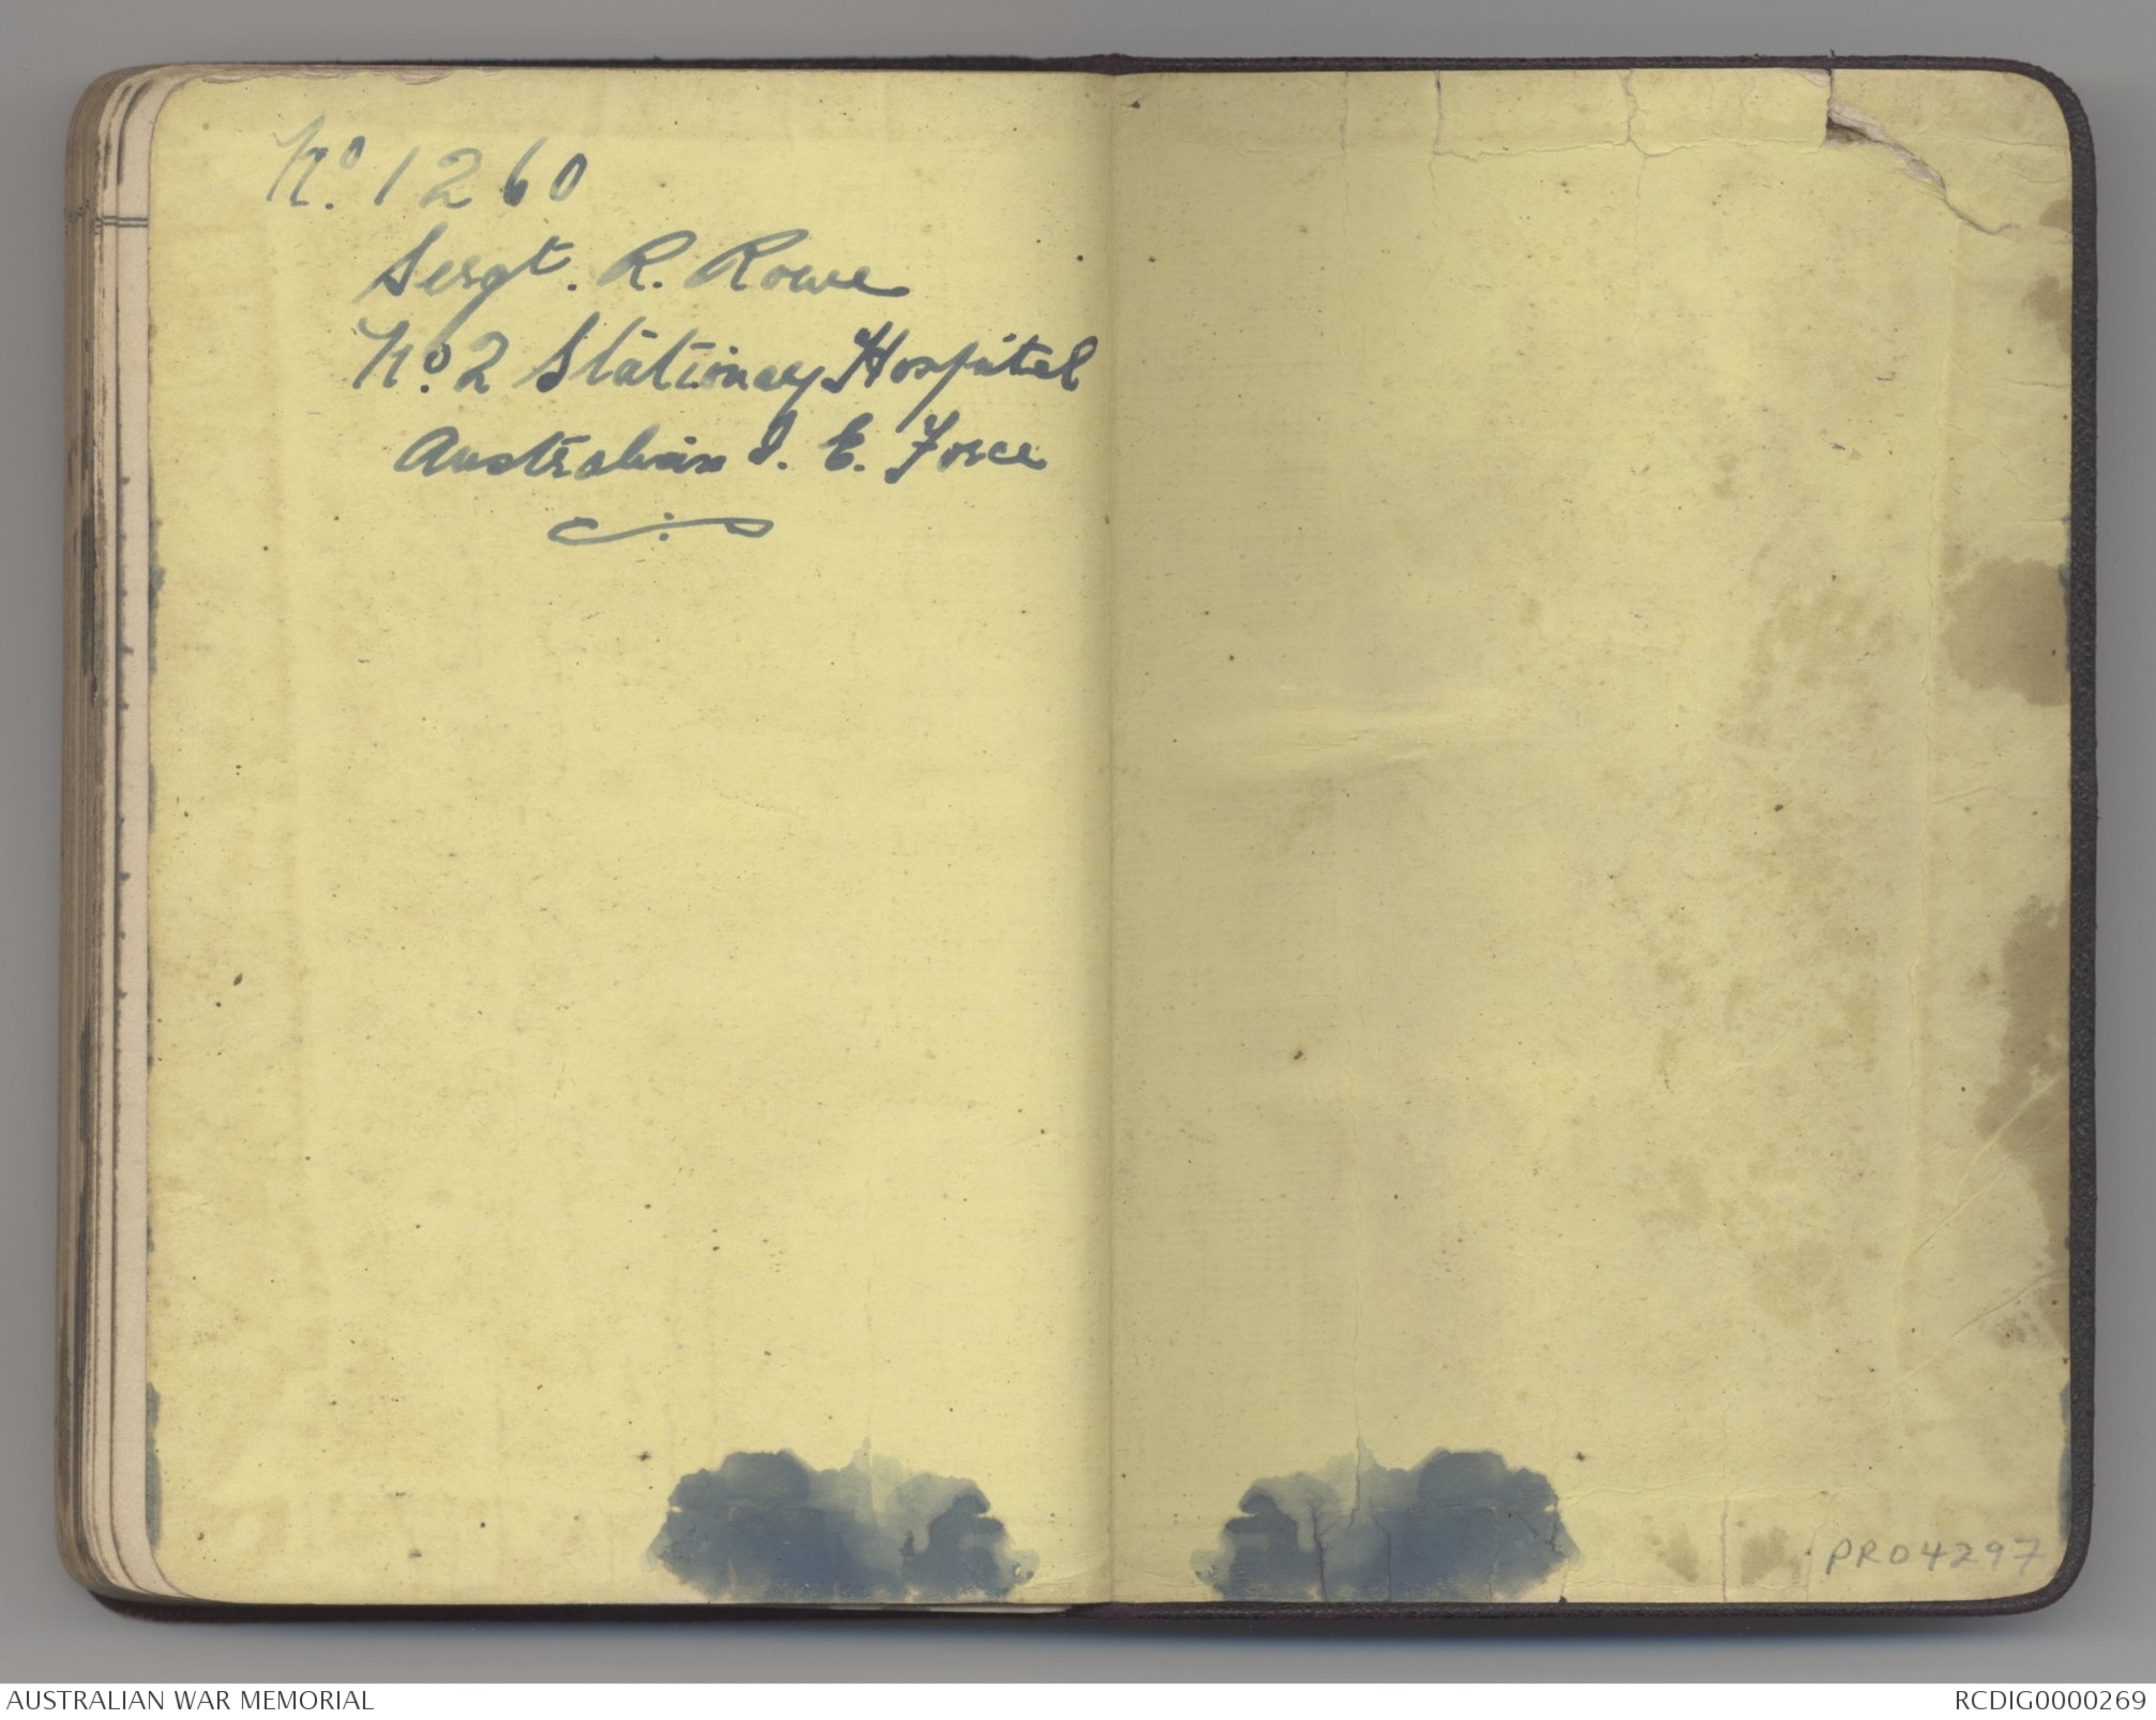 No. 1260
Sergt. R. Rowe
No. 2 Stationay Hospital
Australian I. E. Force
PR04297
AUSTRALIAN WAR MEMORIAL
RCDIG0000269